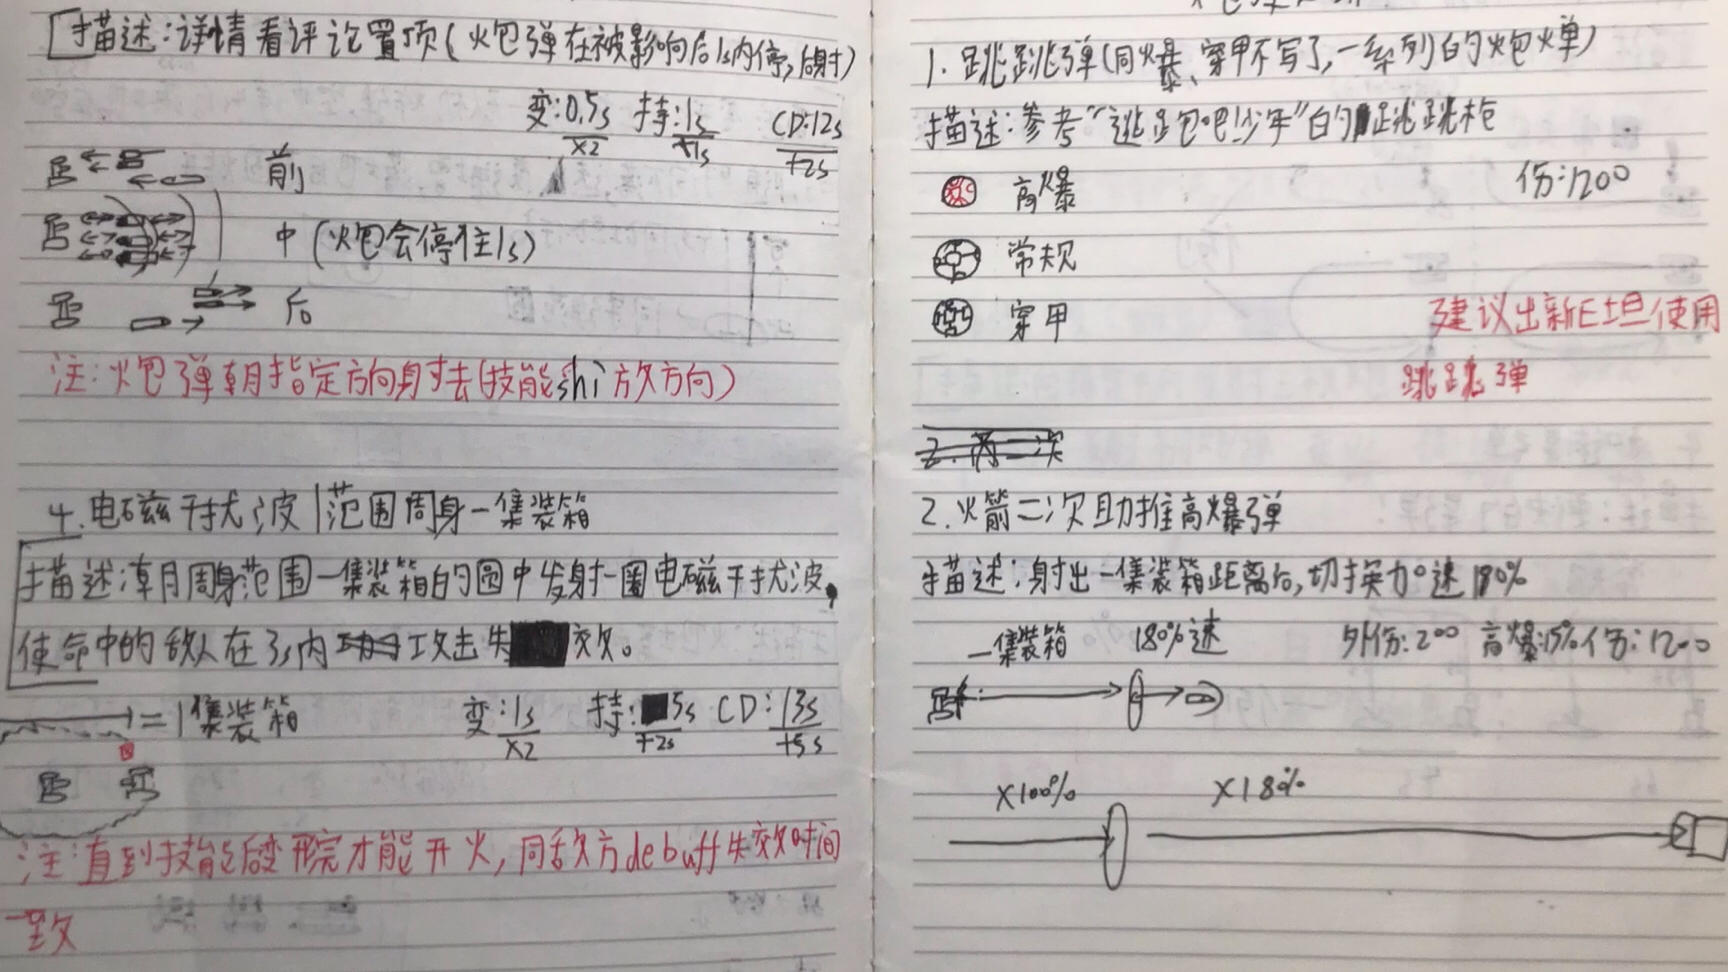 描述:详情看评论置顶(火炮弹在被影响后1s内停,后射)
变:0.5s 持:1s CD:12s
x2 +1s +2s
前
中(火炮会停住1s)
后
注:火炮弹朝指定方向射去(技能shi放方向)
4.电磁干扰波|范围周身一集装箱
描述:朝周身范围一集装箱的圆中发射一圈电磁干扰波,
使命中的敌人在3s内攻击失效。
=1集装箱 变:1s 持:5s CD:13s
x2 +2s +5s
注:直到技能后变形完才能开火,同敌方debuff失效时间
一致
1.跳跳弹(同爆、穿甲不写了,一系列的火炮火单)
描述:参考"逃跑吧少年"的跳跳枪
高爆 伤:1200
常规
穿甲
建议出新坦使用
跳跳弹
2.火箭二次助推高爆弹
描述:射出一集装箱距离后,切换加速180%
一集装箱 180%速 外伤:200 高爆:15%伤:1200
X100% X180%